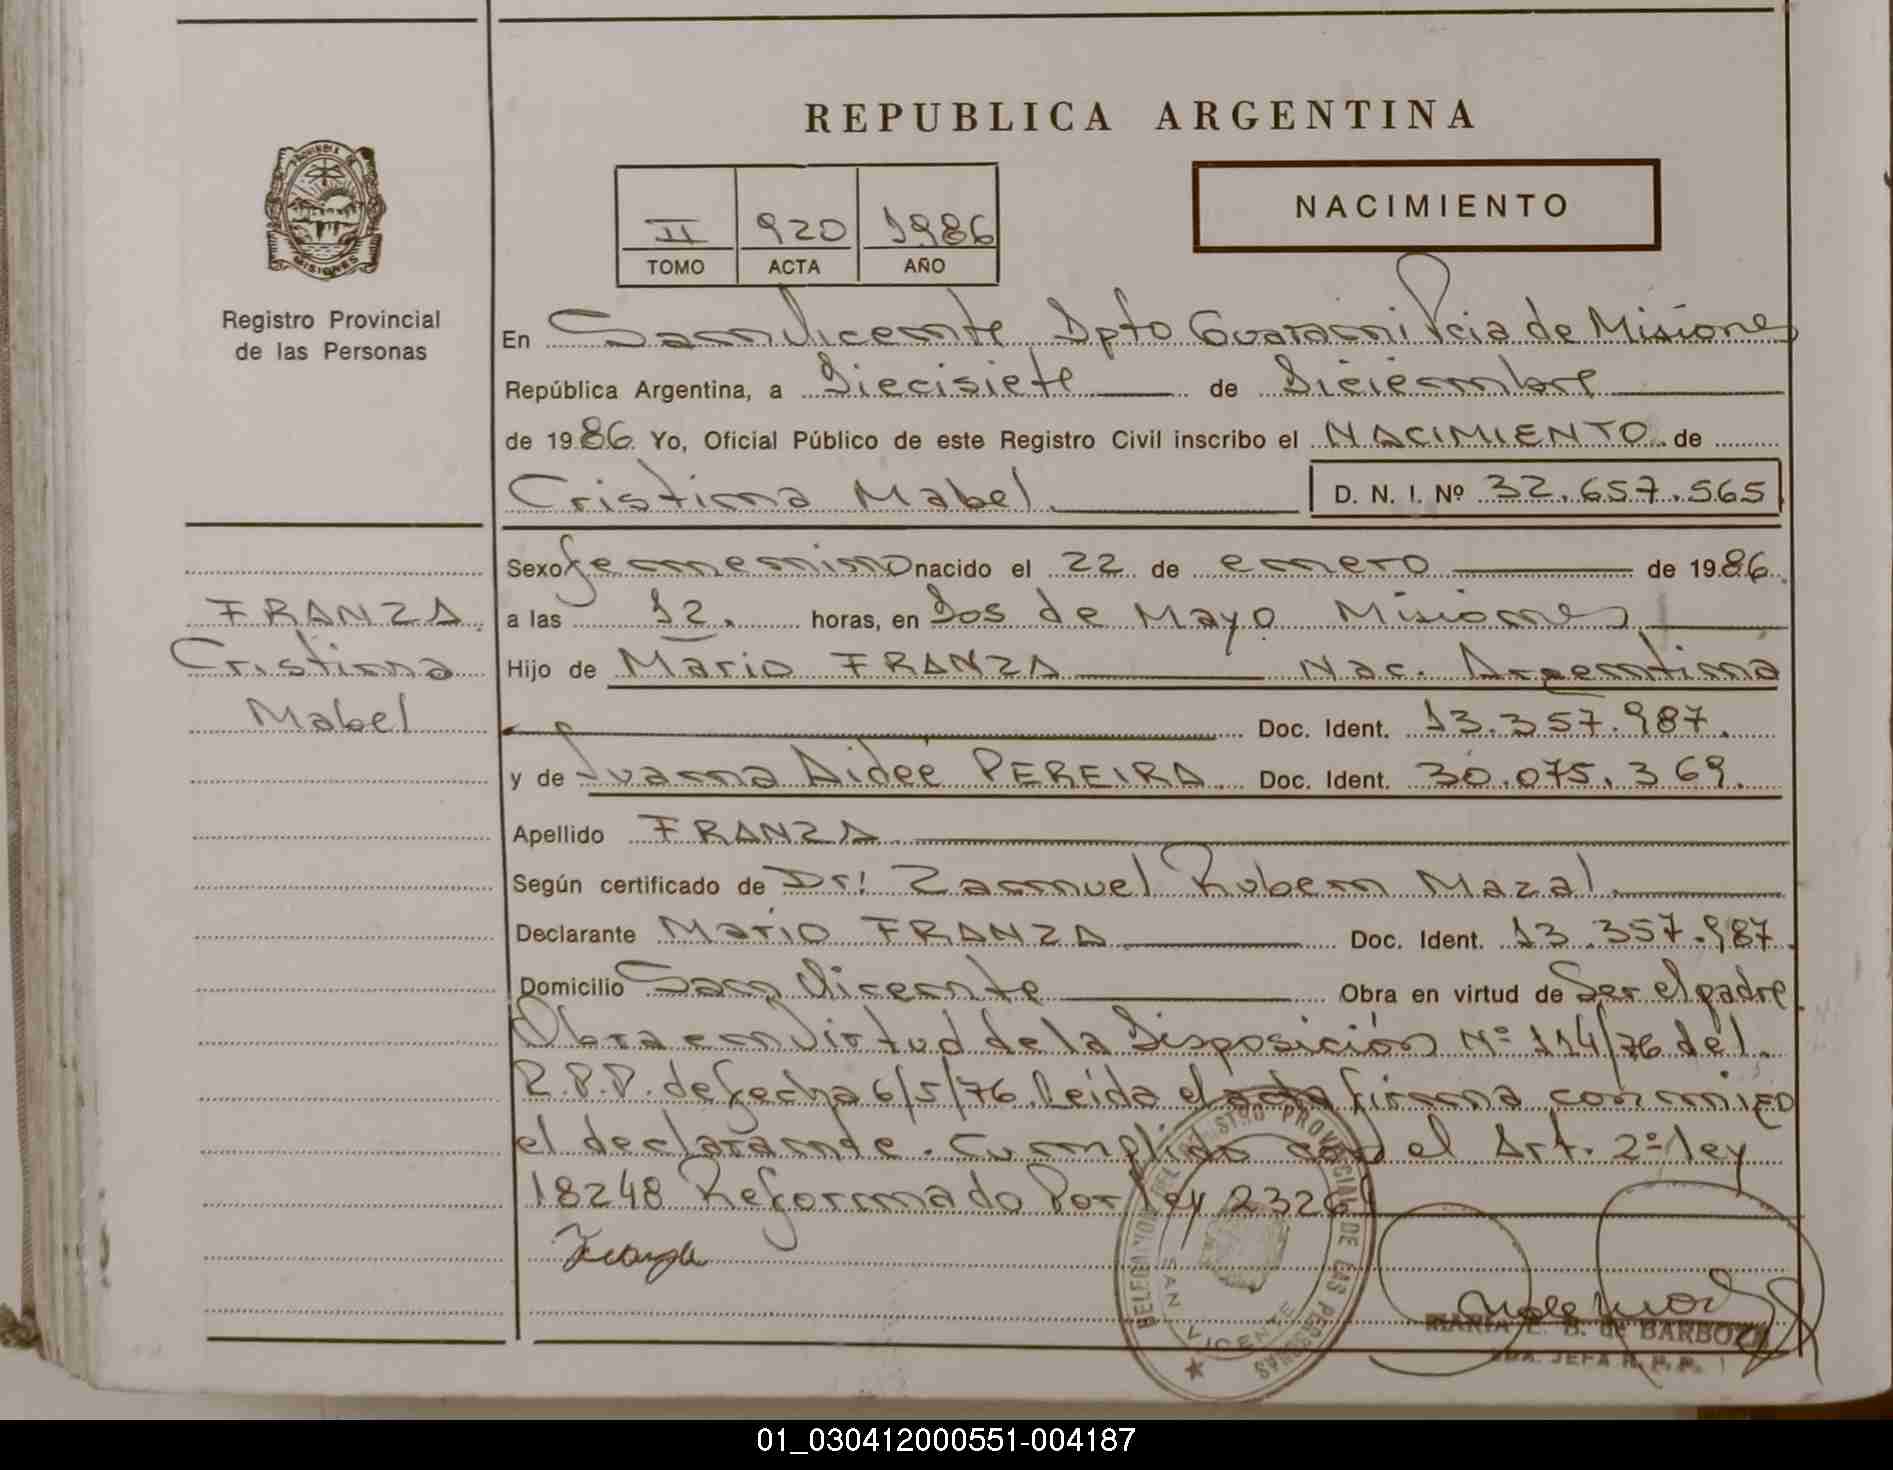 REPUBLICA ARGENTINA
PROVINCIA DE
MISIONES
Registro Provincial
de las Personas
II 920 1986
TOMO ACTA AÑO
NACIMIENTO
En San Vicente Dpto Guarani Pcia de Misiones
República Argentina, a Diecisiete de Diciembre
de 1986. Yo, Oficial Público de este Registro Civil inscribo el NACIMIENTO de
Cristina Mabel D. N. I. Nº 32.657.565
FRANZA
Cristina
Mabel
Sexo femenino nacido el 22 de enero de 1986.
a las 12. horas, en Dos de Mayo Misiones
Hijo de Mario FRANZA Nac. Argentina
Doc. Ident. 13.357.987.
y de Juana Aideé PEREIRA. Doc. Ident. 30.075.369.
Apellido FRANZA.
Según certificado de Dr: Zamuel Ruben Mazal.
Declarante Mario FRANZA Doc. Ident. 13.357.987.
Domicilio San Vicente Obra en virtud de Ser el padre.
Obra en Virtud de la Disposición Nº 114/76 del.
R.P.P. de fecha 6/5/76. Leída el acta firma conmigo
el declarante. Cumplido con el Art. 2º ley
18248 Reformado Por ley 2326
DELEGACION DEL REGISTRO PROVINCIAL DE LAS PERSONAS
SAN VICENTE
MARIA E. B. de BARBOZA
JEFA R. P. P.
01_030412000551-004187